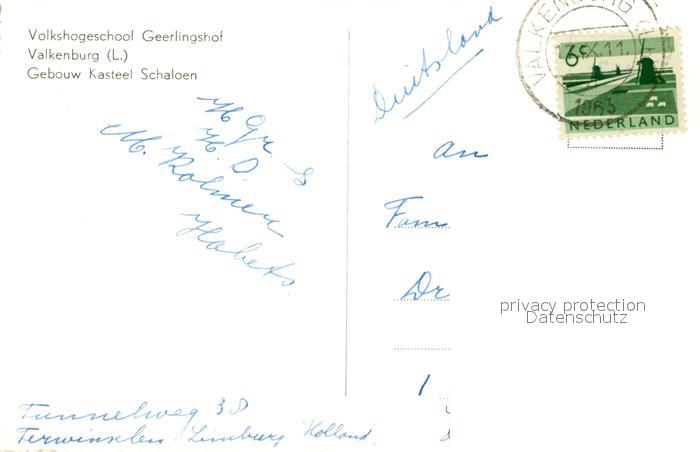 Volkshogeschool Geerlingshof
Valkenburg (L.)
Gebouw Kasteel Schaloen
Duitsland
VALKENBURG
X.11
1963
6c
NEDERLAND
an
Fam
Dr
1
H Gr
H. D
M. Rolinen
Habets
Tunnelweg 38
Terwinselen Limburg Holland.
privacy protection
Datenschutz